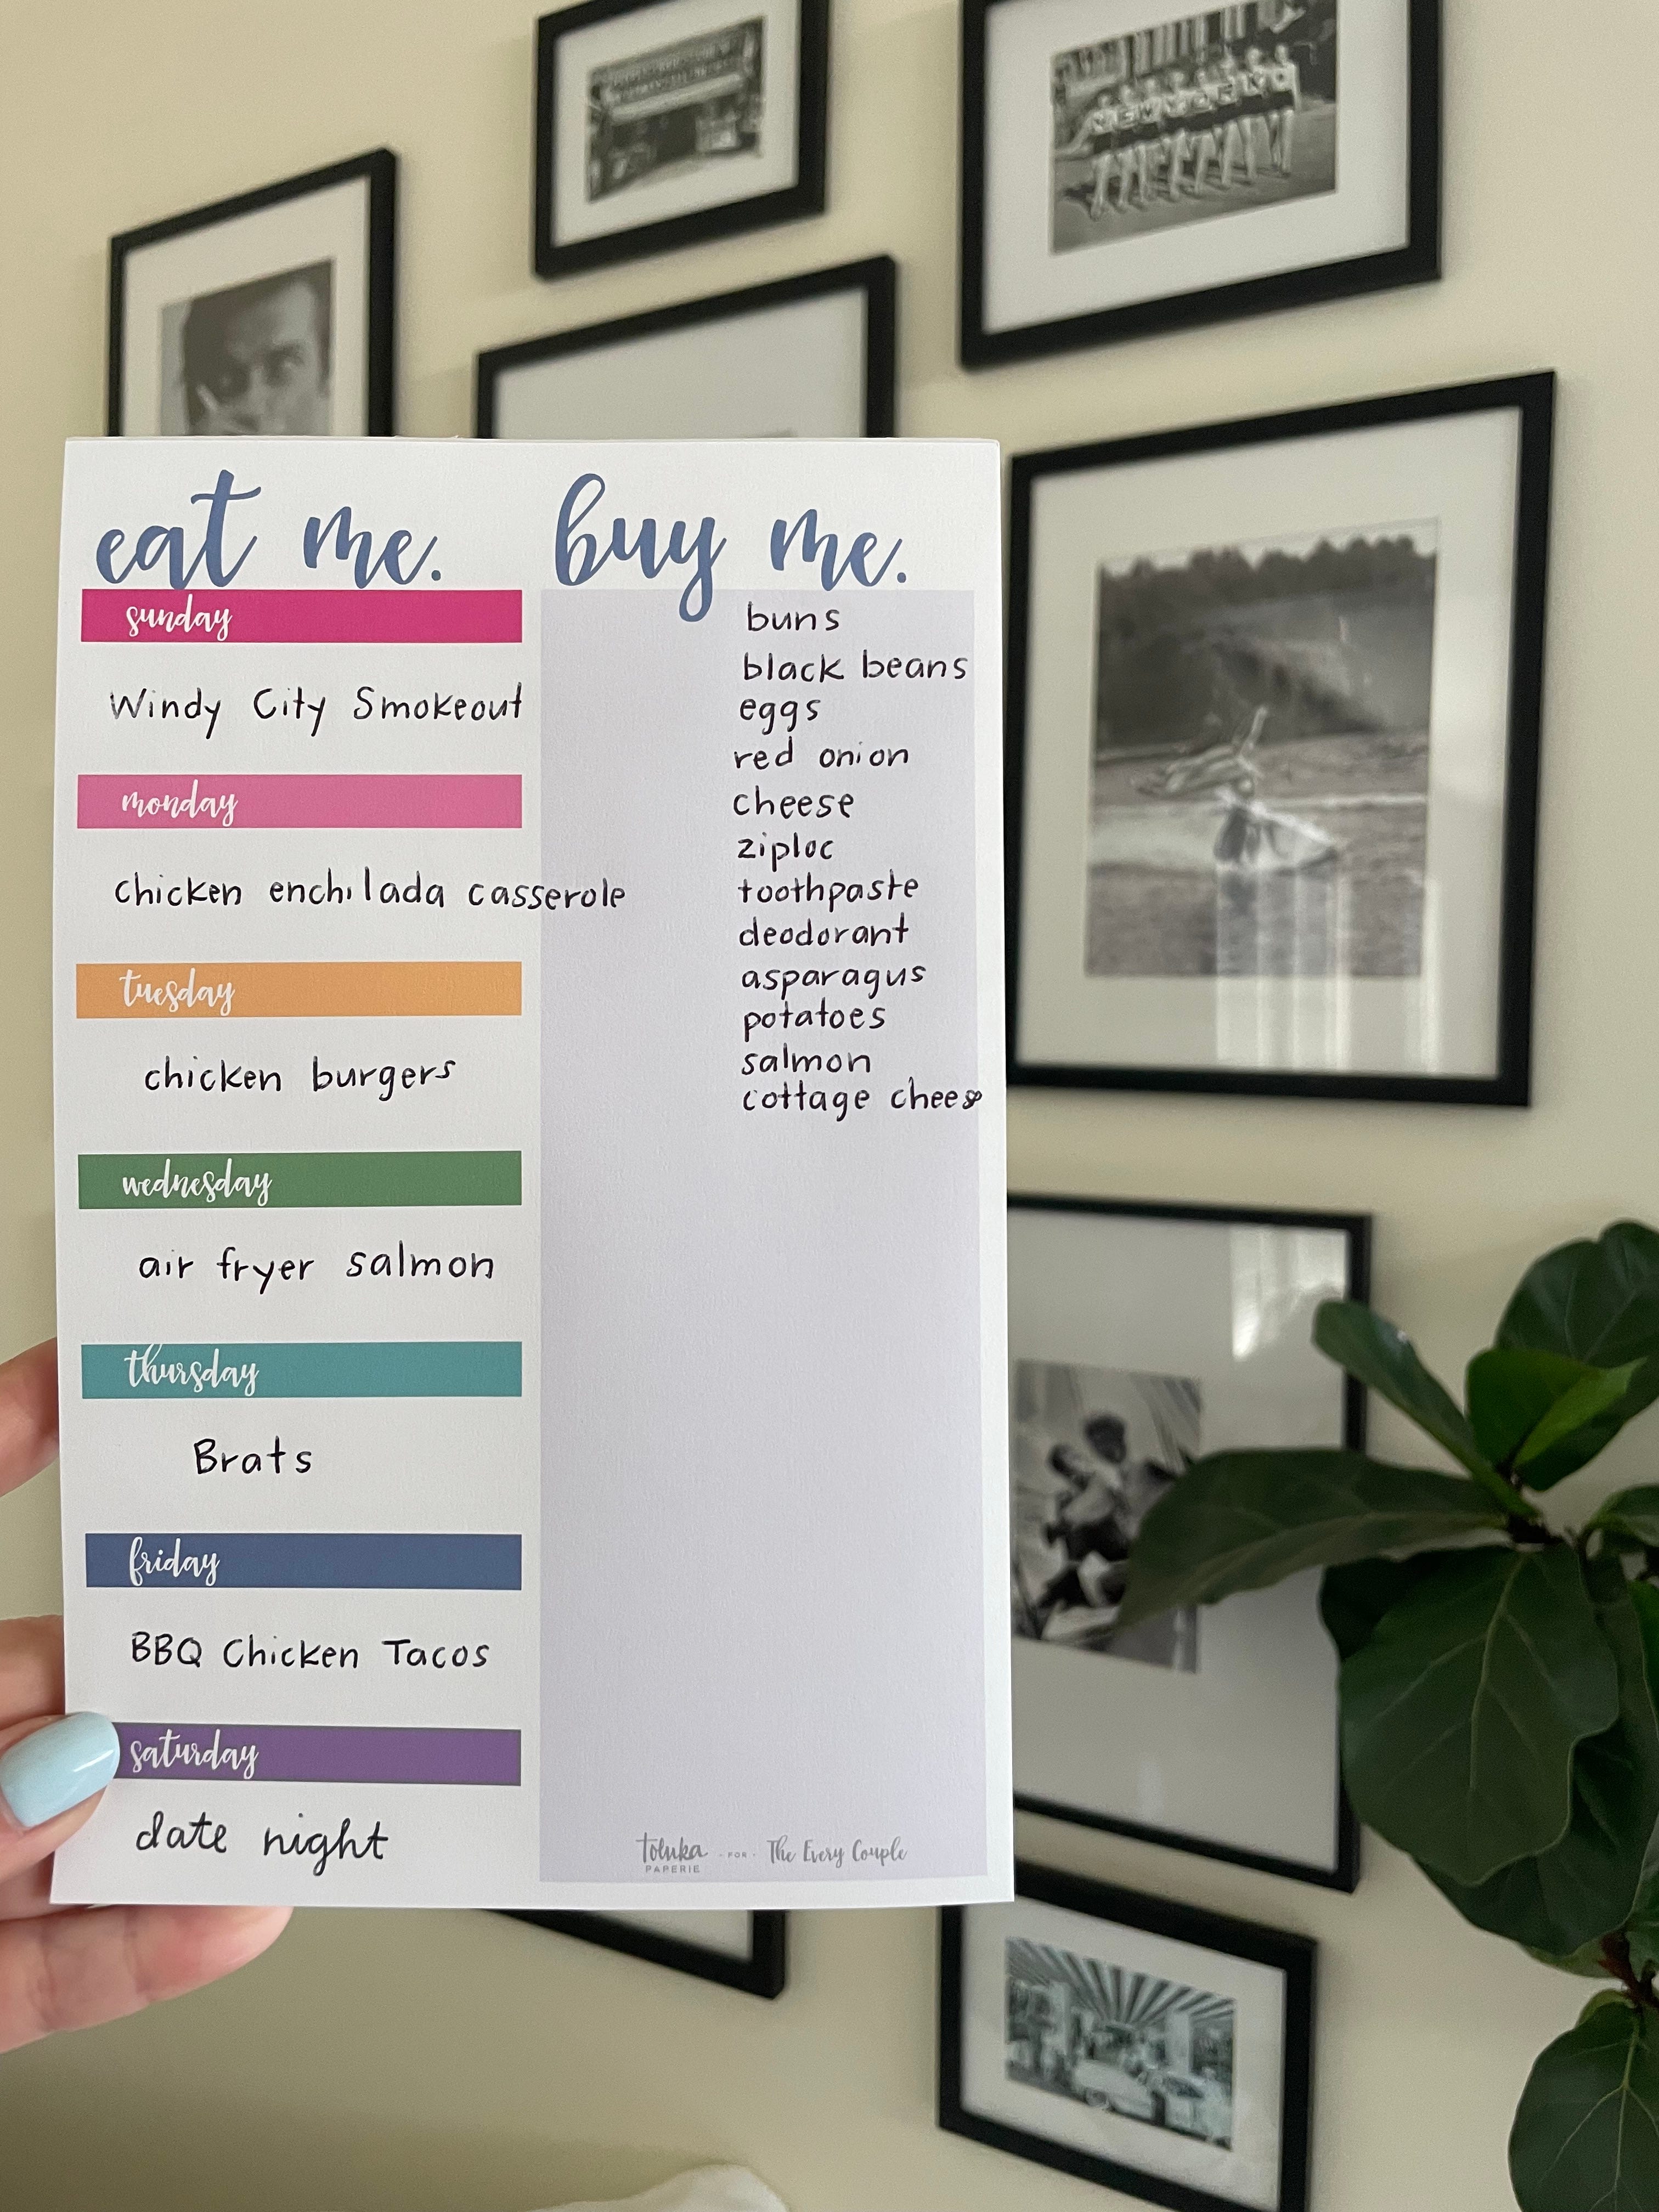 eat me.
sunday
Windy City Smokeout
monday
chicken enchilada casserole
tuesday
chicken burgers
wednesday
air fryer salmon
thursday
Brats
friday
BBQ Chicken Tacos
saturday
date night
buy me.
buns
black beans
eggs
red onion
cheese
ziploc
toothpaste
deodorant
asparagus
potatoes
salmon
cottage cheese
toluka PAPERIE - FOR - The Every Couple